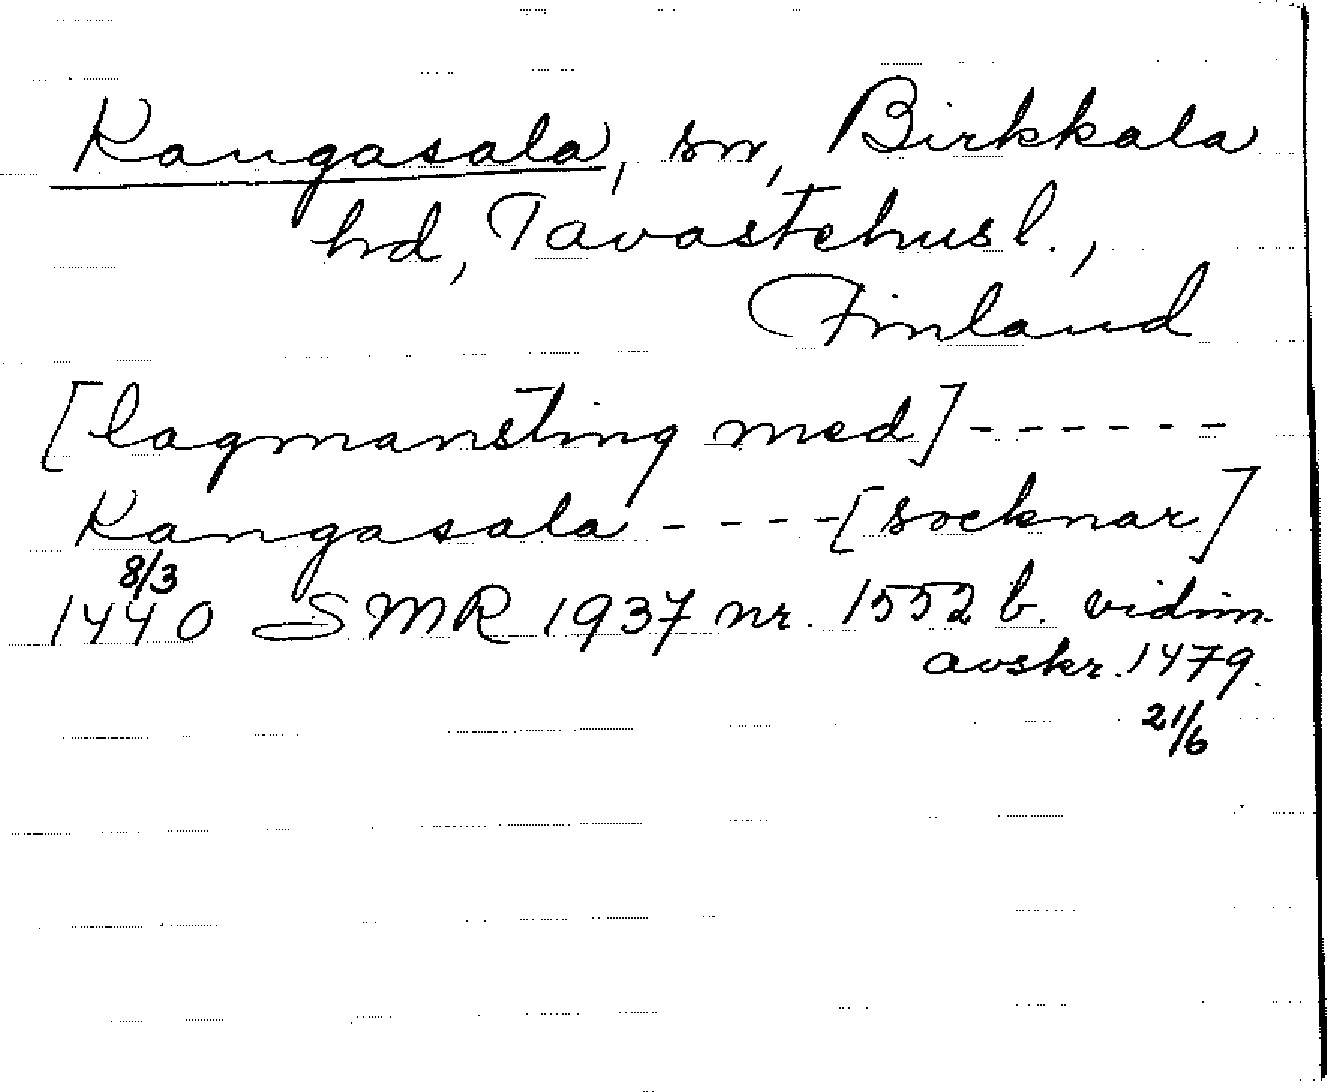 Kangasala, sn, Birkkala
hd, Tavastehusl.,
Finland
[lagmansting med] - - - - - -
Kangasala - - - - [socknar]
8/3
1440 SMR 1937 nr. 1552 b. vidim.
avskr. 1479.
21/6